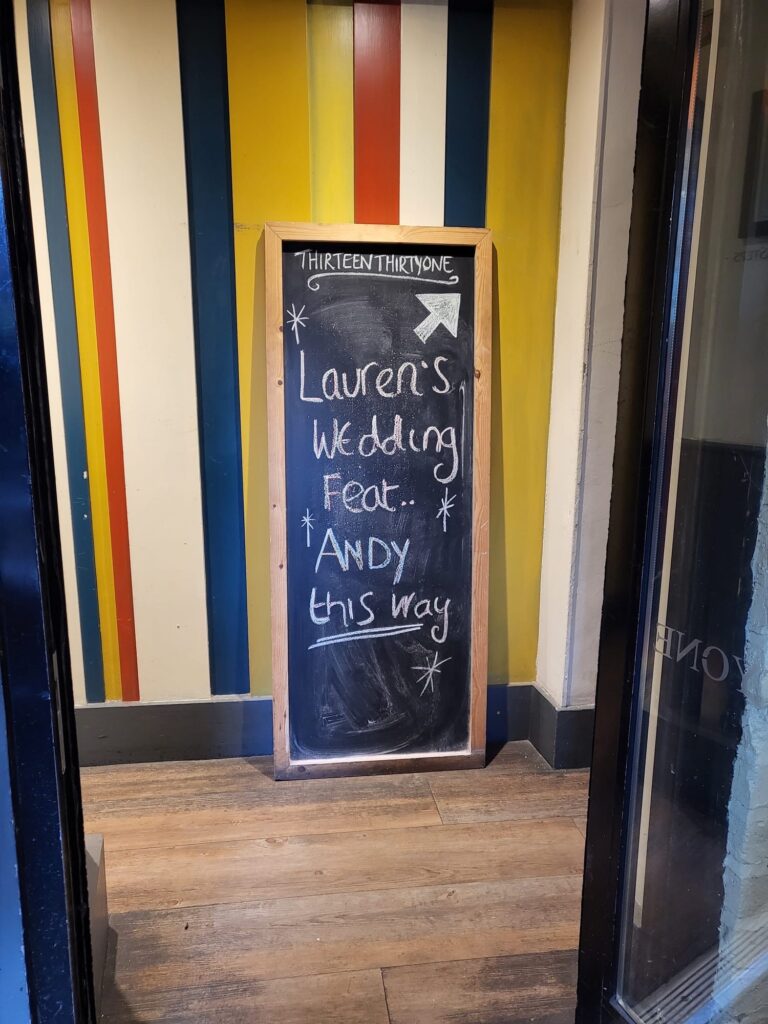 THIRTEEN THIRTYONE
Lauren's
Wedding
Feat..
ANDY
this way